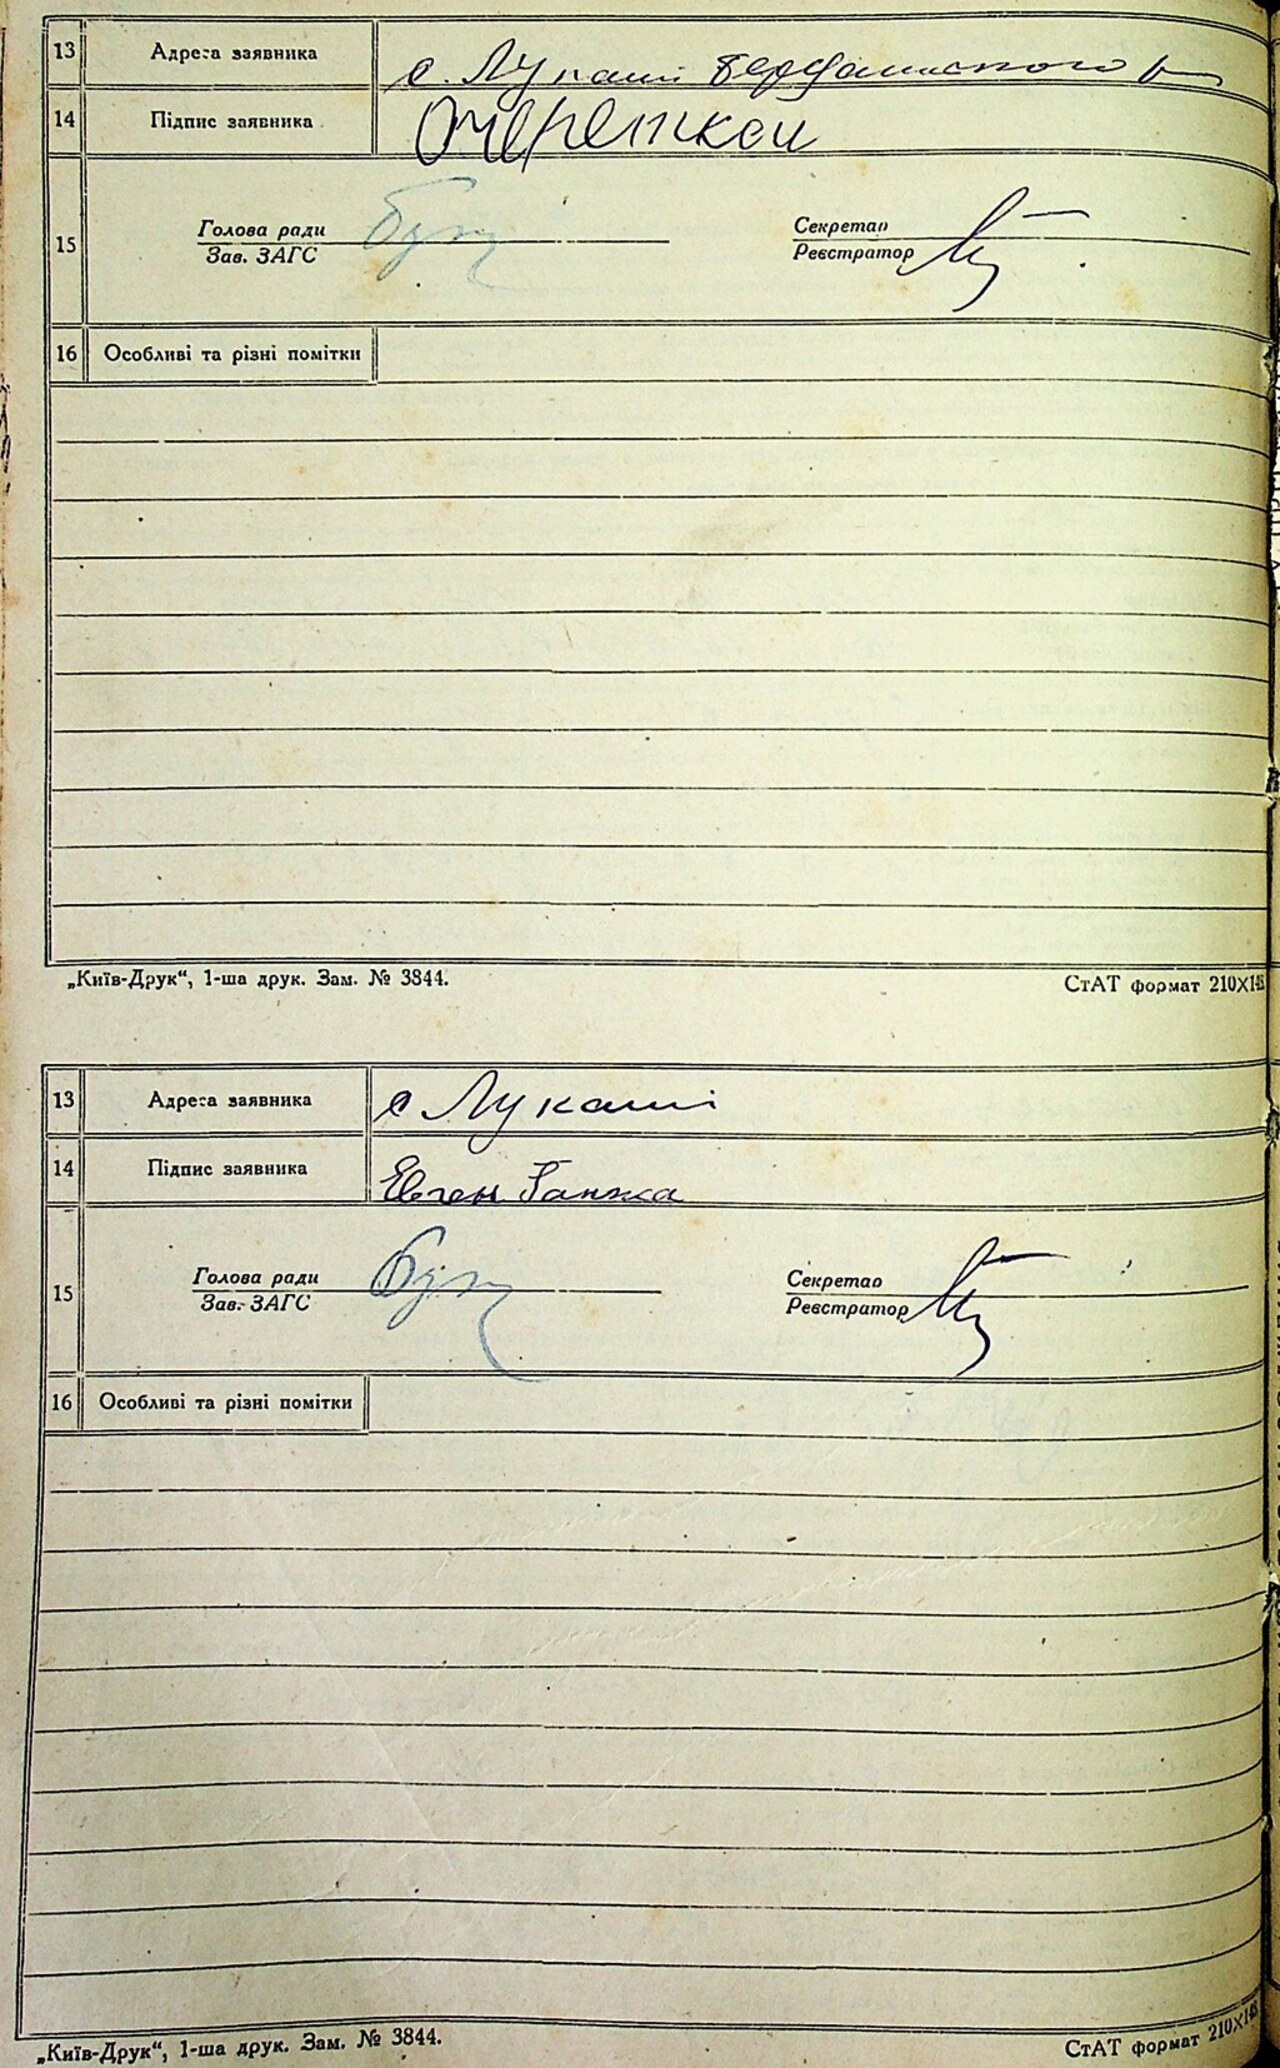 13 Адреса заявника с. Лукаші
14 Підпис заявника
15 Голова ради Секретар
Зав. ЗАГС Реєстратор
16 Особливі та різні помітки
„Київ-Друк“, 1-ша друк. Зам. № 3844. СтАТ формат 210X148
13 Адреса заявника с Лукаші
14 Підпис заявника Евген Ганжа
15 Голова ради Секретар
Зав. ЗАГС Реєстратор
16 Особливі та різні помітки
„Київ-Друк“, 1-ша друк. Зам. № 3844. СтАТ формат 210X148